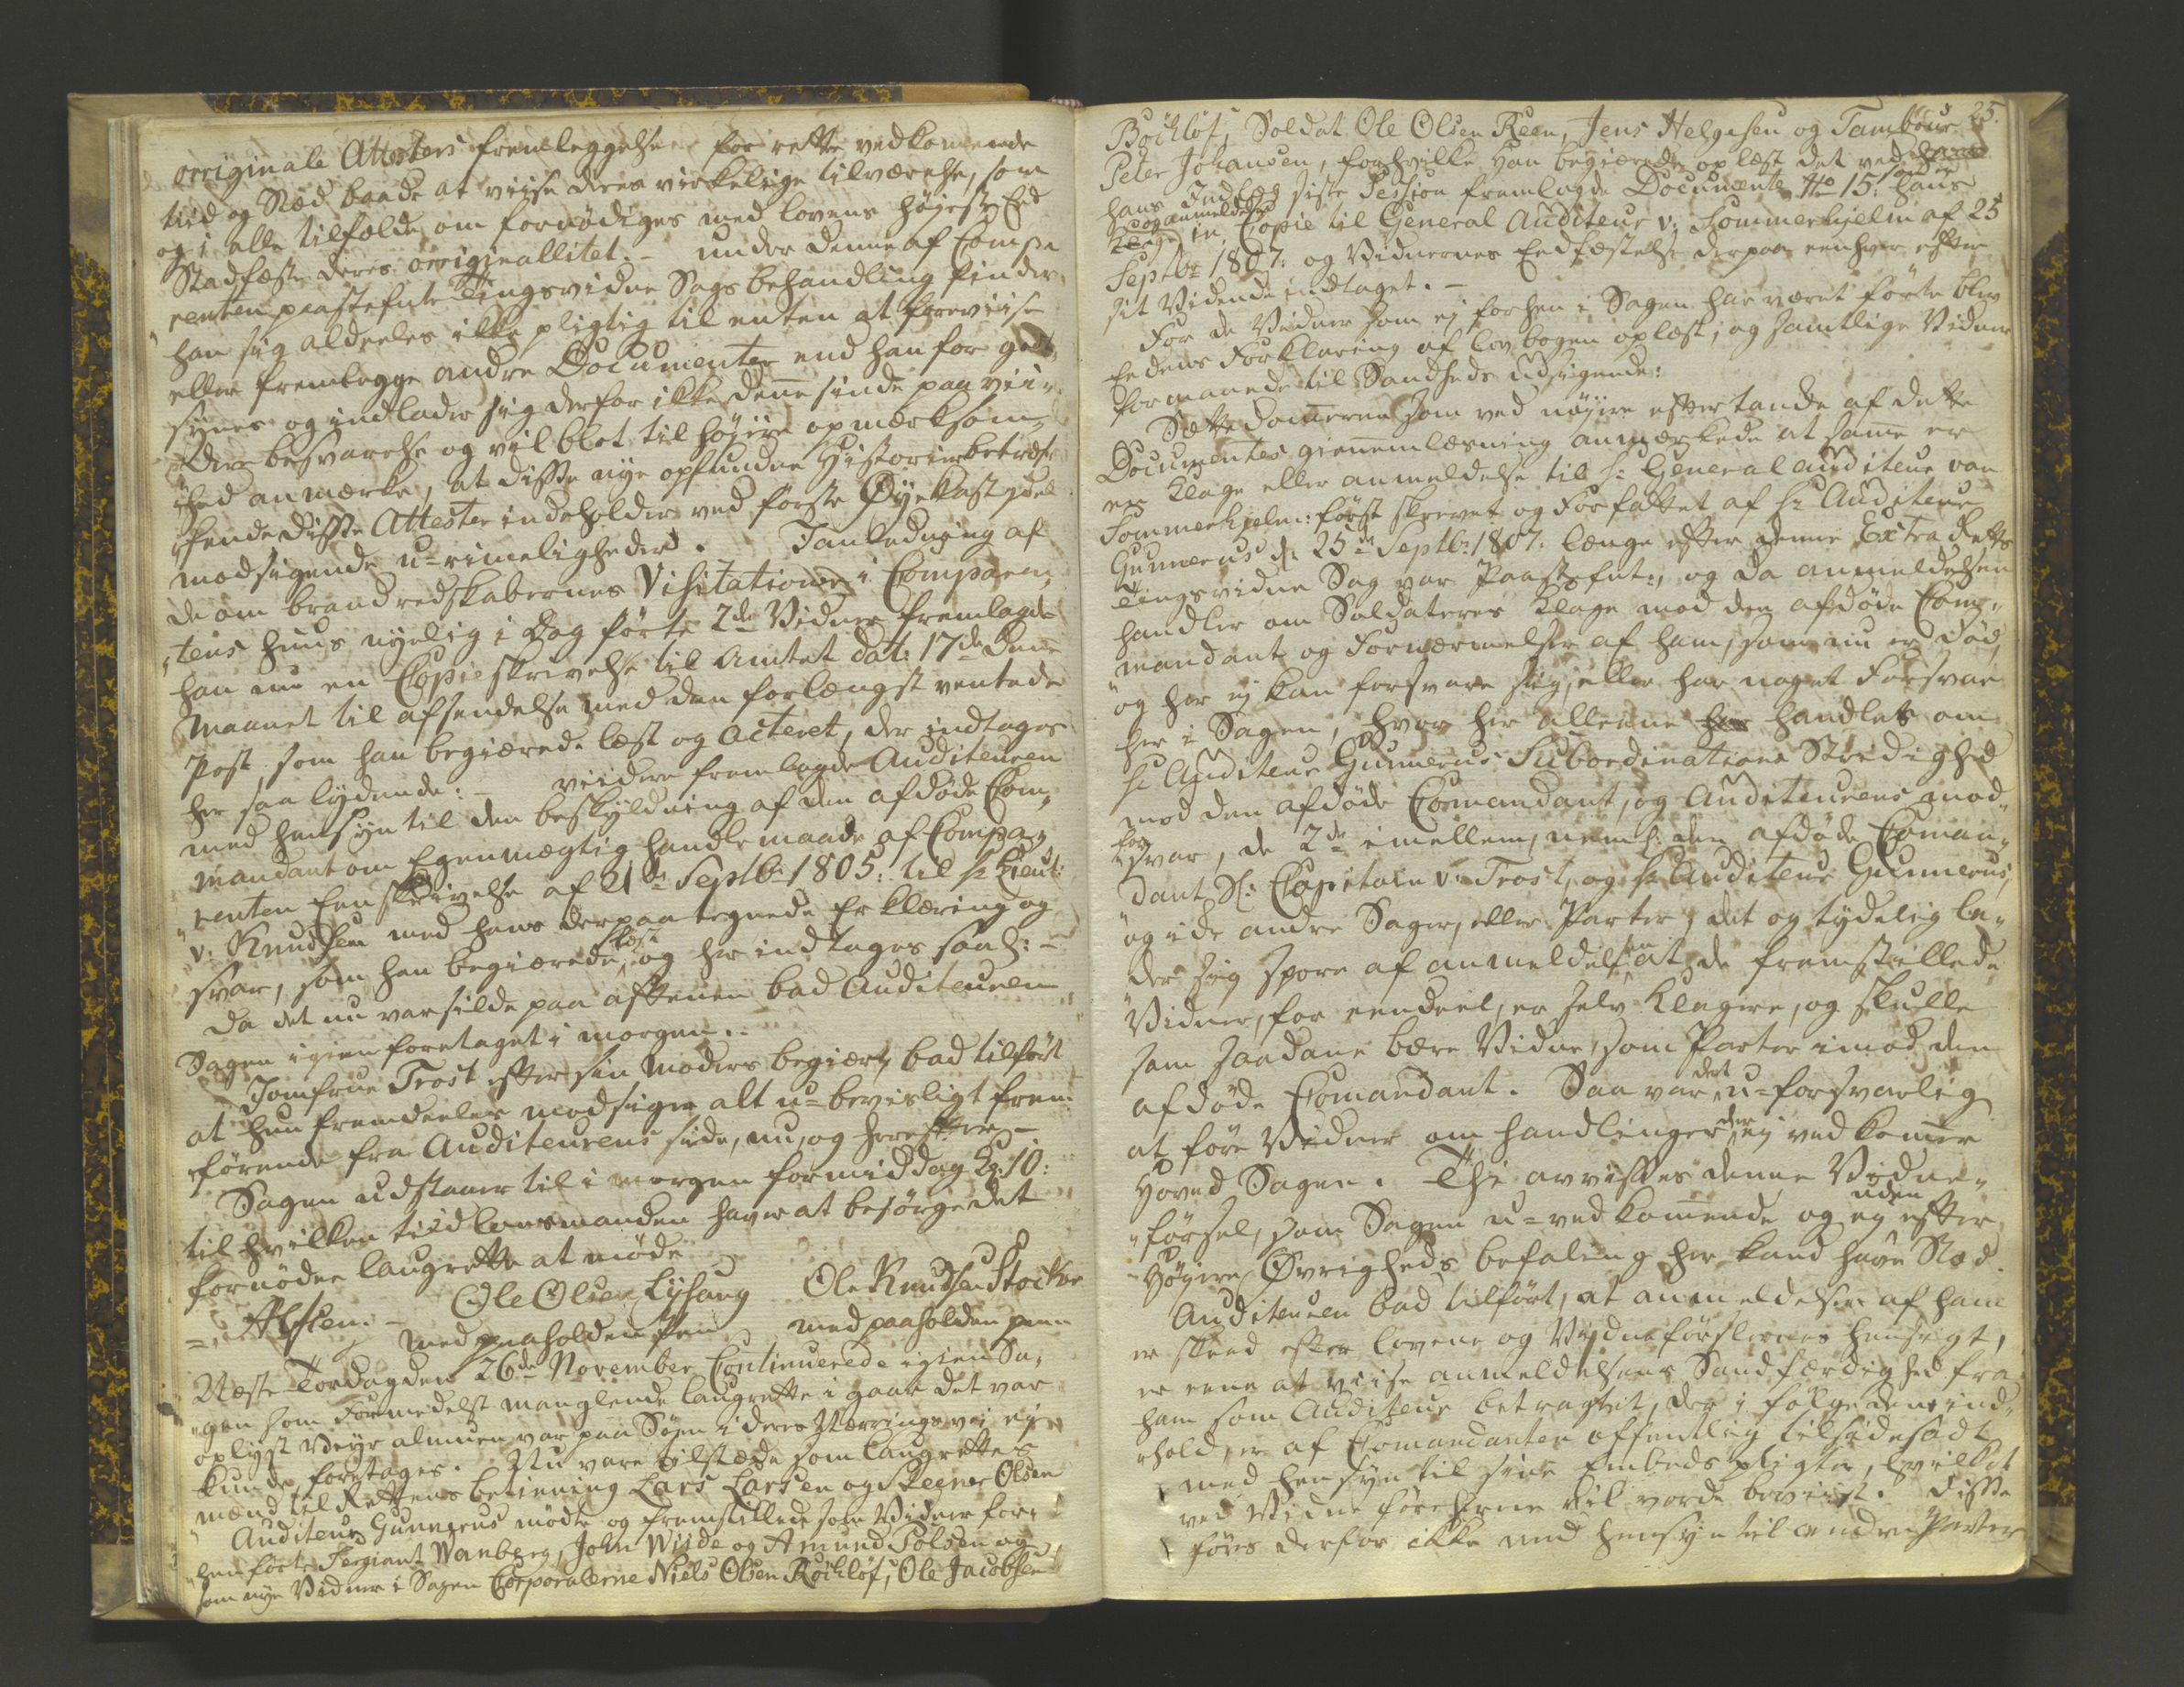 orriginale Attesters fremleggelse for rette vedkommende
tiid og Stæd baade at viise deres virkelige tilværelse, som
og i alle tilfælde om fornødiges med lovens høyeste Eed
Stadfæste deres orriginallitet. - under denne af Compa
renten paastefnte Tingsvidne Sags behandling finder
han sig aldeeles ikke pligtig til enten at fremviise
eller fremlegge andre Documenter end han for godt
synes og indlader sig derfor ikke denne sinde paa vii-
dere besvarelse og vil blot til høyere opmærksom-
hed anmærke, at disse nye opfundne Historier betref-
fende disse Attester indeholder ved første Øyekast
modsigende u-rimeligheder. I anledning af
de om brandredskabernes Visitationer i Comparen-
tens huus nyelig i Dag førte 2de Vidner fremlagde
han nu en Copie skrivelse til Amtet dat: 17de denne
Maanet til afsendelse med den forlængst ventede
Post, som han begiærede læst og Acteret, der indtages
her saa lydende: - viidere fremlagde Auditeuren
med hensyn til den beskyldning af den afdøde Com-
mandant om Egenmægtig handle maade af Compa-
renten Een skrivelse af 21de Septbr 1805. til Hr Lieut:
v. Knudsen med hans derpaa tegnede Erklæring og
svar, som han begiærede læst, og her indtages saal: -
Da det nu var silde paa aftenen bad Auditeuren
Sagen igien foretaget i morgen. -
Jomfrue Trost efter sin Moders begiær, bad tilført
at hun fremdeeles modsiger alt u-bevisligt frem-
førende fra Auditeurens side, nu, og herefter -
Sagen udstaaer til i morgen formiddag Kl. 10:
til hvilken tiid lensmanden haver at besørge det
fornødne laugrette at møde
Alsten. - Ole Olsen Lysaug Ole Knudsen Stocke
med paaholden Pen med paaholden pen
Næste Torsdag den 26de November Continuerede igien Sa-
gen som formedelst manglende laugrette i gaar det var
oplyst Veyr almuen var paa Søen i deres Nærrings vei ei
kunde foretages. Nu vare tilstæde som laugrettes
mænd til Rettens betiening Lars Larsen og Peener Olsen
Auditeur Gunnerus mødte og fremstillede som Vidner for-
hen førte Sergiant Wanberg, John Wiide og Amund Polsen og
som nye Vidner i Sagen Corporalerne Niels Olsen Røchløf, Ole Jacobsen
25.
Røchløf, Soldat Ole Olsen Reen, Jens Helgesen og Tambour
Peter Johansen, for hvilke han begiærede oplæst det ved
hans Indlæg siste Session fremlagde Documente No 15. hans
Klage og anmeldelse in Copie til General Auditeur v: Sommerhjelm af 25
Septbr 1807. og Vidnernes Eedfæstelse derpaa eenhver efter
sit Vidende indtaget. -
For de Vidner som ej forhen i Sagen har været førte blev
Eedens Forklaring af lovbogen oplæst, og samtlige Vidner
formanede til Sandheds udsigende:
Sættedommeren som ved nøyere eftertanke af dette
Documentes giennemlæsning anmærkede at samme er
en Klage eller anmeldelse til Hr General Auditeur von
Sommerhjelm: først skrevet og Forfattet af Hr Auditeur
Gunnerus d. 25de Septbr 1807. længe efter denne Extra Retts
Tingsvidne Sag var Paastefnt, og da anmeldelsen
handler om Soldaternes Klage mod den afdøde Com-
mandant og Fornærmelser af ham, som nu er død,
og her ej kan forsvare sig, eller har noget Forsvar
her i Sagen, hvor her alleene handles om
Hr Auditeur Gunnerus Subordinations Stridighed
mod den afdøde Commandant, og Auditeurens mod-
forsvar, de 2de imellem, neml: den afdøde Comman-
dant Sl: Capitain v. Trost, og Hr Auditeur Gunnerus,
og i de andre Sager, eller Parter, det og tydelig la-
der sig spore af anmeldelsen at de fremstillede
Vidner, for eendeel, er selv Klagere, og skulle
som saadane bære Vidne, som Parter imod den
afdøde Commandant. Saa var det u-forsvarlig
at føre Vidner om handlinger der ej vedkommer
Hoved Sagen. Thi avvisses denne Vidne-
førsel, som Sagen u-vedkommende og ey uden efter
Høyere Øvrigheds befaling her kand have Stæd.
Auditeuren bad tilført, at anmeldelsen af ham
er skeed efter lovene og Vidneførslernes hensigt,
er eene at viise anmeldelsens Sandfærdighed fra
ham som Auditeur betragtet, der i følge dens ind-
hold, er af Commandanten offentlig tilsidesadt
med hensyn til sine Embeds pligter, hvilket
ved Vidne førelserne vil vorde beviist. Disse
føres derfor ikke med hensyn til andre Parter